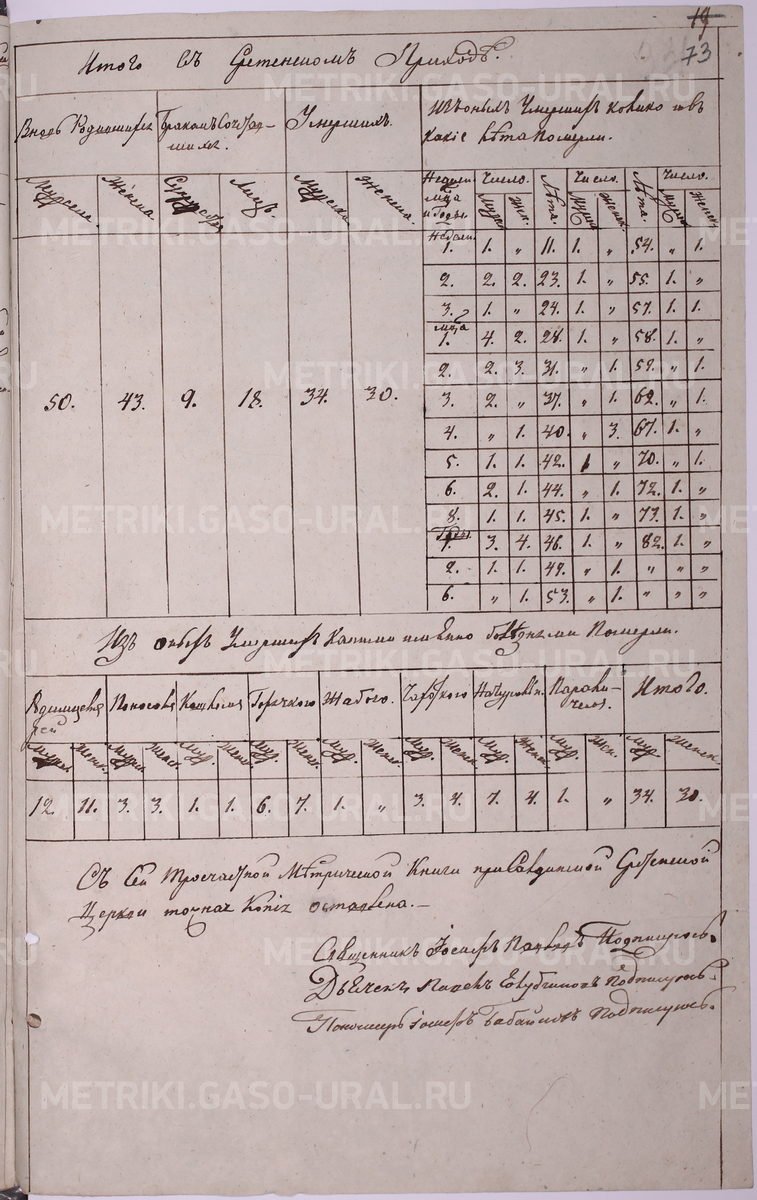 19
73
Итого въ Сретенскомъ Приходѣ.
Вновь Родившихся
Бракомъ Сочетавшихся.
Умершимъ.
Изъ оныхъ Умершихъ колико и въ
какіе лѣта померли.
Мужеска. Женска. Супружествъ Лицъ. Мужеска Женска.
Недели мца и годы. Число. Муж. Жен. Лѣта. Число. Муж. Женск. Лѣта. Число. Муж. Женск.
Недели
1. 1. „ 11. 1. „ 54. „ 1.
2. 2. 2. 23. 1. „ 55. 1. „
3. 1. „ 24. 1. „ 57. 1. 1.
мца
1. 4. 2. 28. 1. „ 58. 1. „
2. 2. 3. 31. „ 1. 59. „ 1.
3. 2. „ 37. „ 1. 62. „ 1.
4. „ 1. 40. „ 3. 67. 1. „
5. 1. 1. 42. 1 „ 70. „ 1.
6. 2. 1. 44. „ 1. 72. 1. „
8. 1. 1. 45. 1. „ 73. 1. „
Годы.
1. 3. 4. 46. 1. „ 82. 1. „
2. 1. 1. 49. „ 1. „ „ „
6. „ 1. 53. „ 1. „ „ „
50. 43. 9. 18. 34. 30.
Изъ Умершихъ Какими имянно болѣзньми Померли.
Поносомъ Кашлемъ Горячкою Жабою. Чахоткою Итого.
Муж. Женск. Муж. Женск. Муж. Женск. Муж. Женск. Муж. Женск. Муж. Женск. Муж. Женск. Муж. Жен. Муж. Женск.
12. 11. 3. 3. 1. 1. 6. 7. 1. „ 3. 4. 7. 4. 1. „ 34. 30.
Съ Сей Троечастной Мѣтрической Книги при Сретенской
Церкви точная Копія оставлена. —
Священникъ Іосифъ Подписуюсь.
Дьячекъ Подписуюсь.
Пономарь Подписуюсь.
METRIKI.GASO-URAL.RU